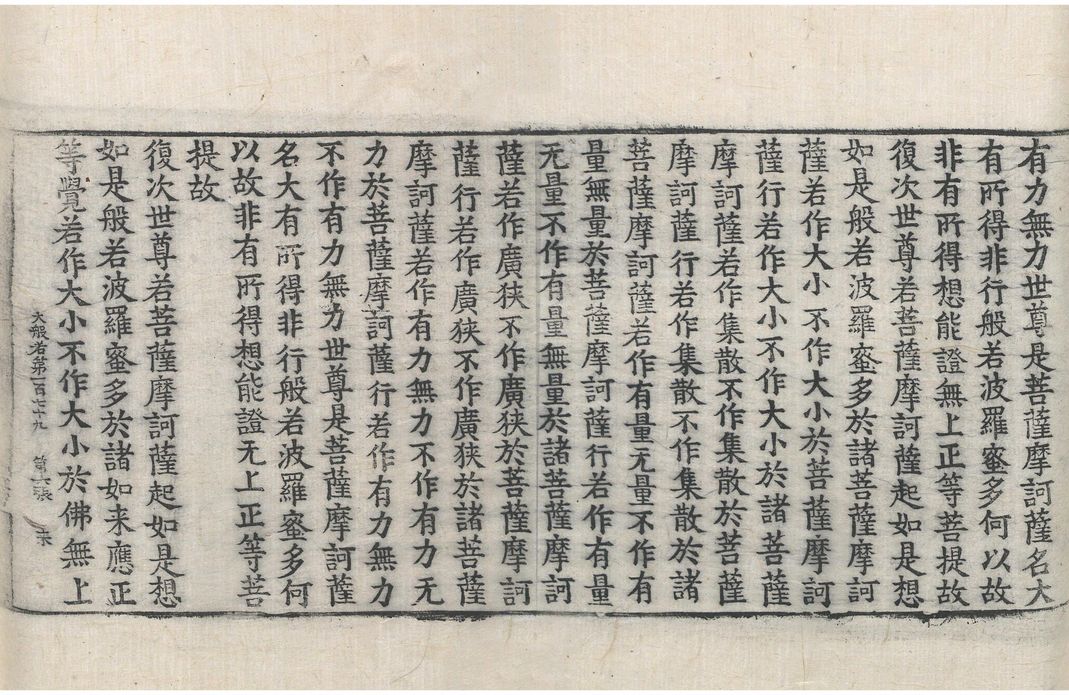 有力無力世尊是菩薩摩訶薩名大
有所得非行般若波羅蜜多何以故
非有所得想能證無上正等菩提故
復次世尊若菩薩摩訶薩起如是想
如是般若波羅蜜多於諸菩薩摩訶
薩若作大小不作大小於菩薩摩訶
薩行若作大小不作大小於諸菩薩
摩訶薩若作集散不作集散於菩薩
摩訶薩行若作集散不作集散於諸
菩薩摩訶薩若作有量无量不作有
量無量於菩薩摩訶薩行若作有量
无量不作有量無量於諸菩薩摩訶
薩若作廣狭不作廣狭於菩薩摩訶
薩行若作廣狭不作廣狭於諸菩薩
摩訶薩若作有力無力不作有力无
力於菩薩摩訶薩行若作有力無力
不作有力無力世尊是菩薩摩訶薩
名大有所得非行般若波羅蜜多何
以故非有所得想能證无上正等菩
提故
復次世尊若菩薩摩訶薩起如是想
如是般若波羅蜜多於諸如来應正
等覺若作大小不作大小於佛無上
大般若第一百七十九 第六張